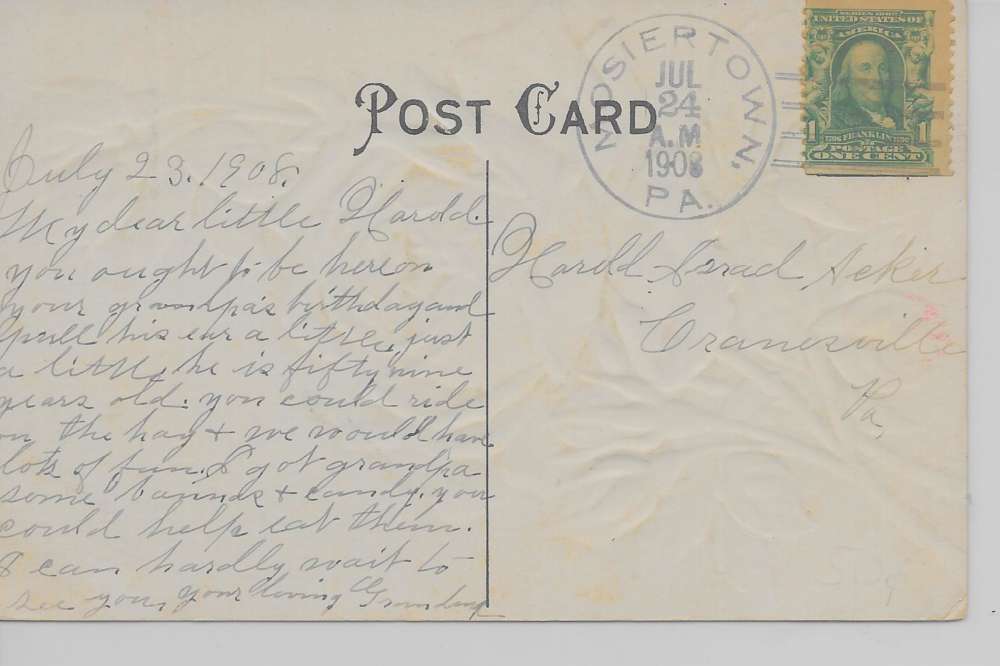 POST CARD
MOSIERTOWN,
JUL
24
A.M
1908
PA.
SERIES 1902
UNITED STATES OF
AMERICA
1 FRANKLIN
POSTAGE
ONE CENT
July 23. 1908.
My dear little Harold.
you ought to be here on
your grandpa's birthday and
pull his ear a little, just
a little, he is fifty nine
years old. you could ride
on the hay + we would have
lots of fun. I got grandpa
some + candy. you
could help eat them.
I can hardly wait to
see you, your loving
Harold Acker
Cranesville
Pa,